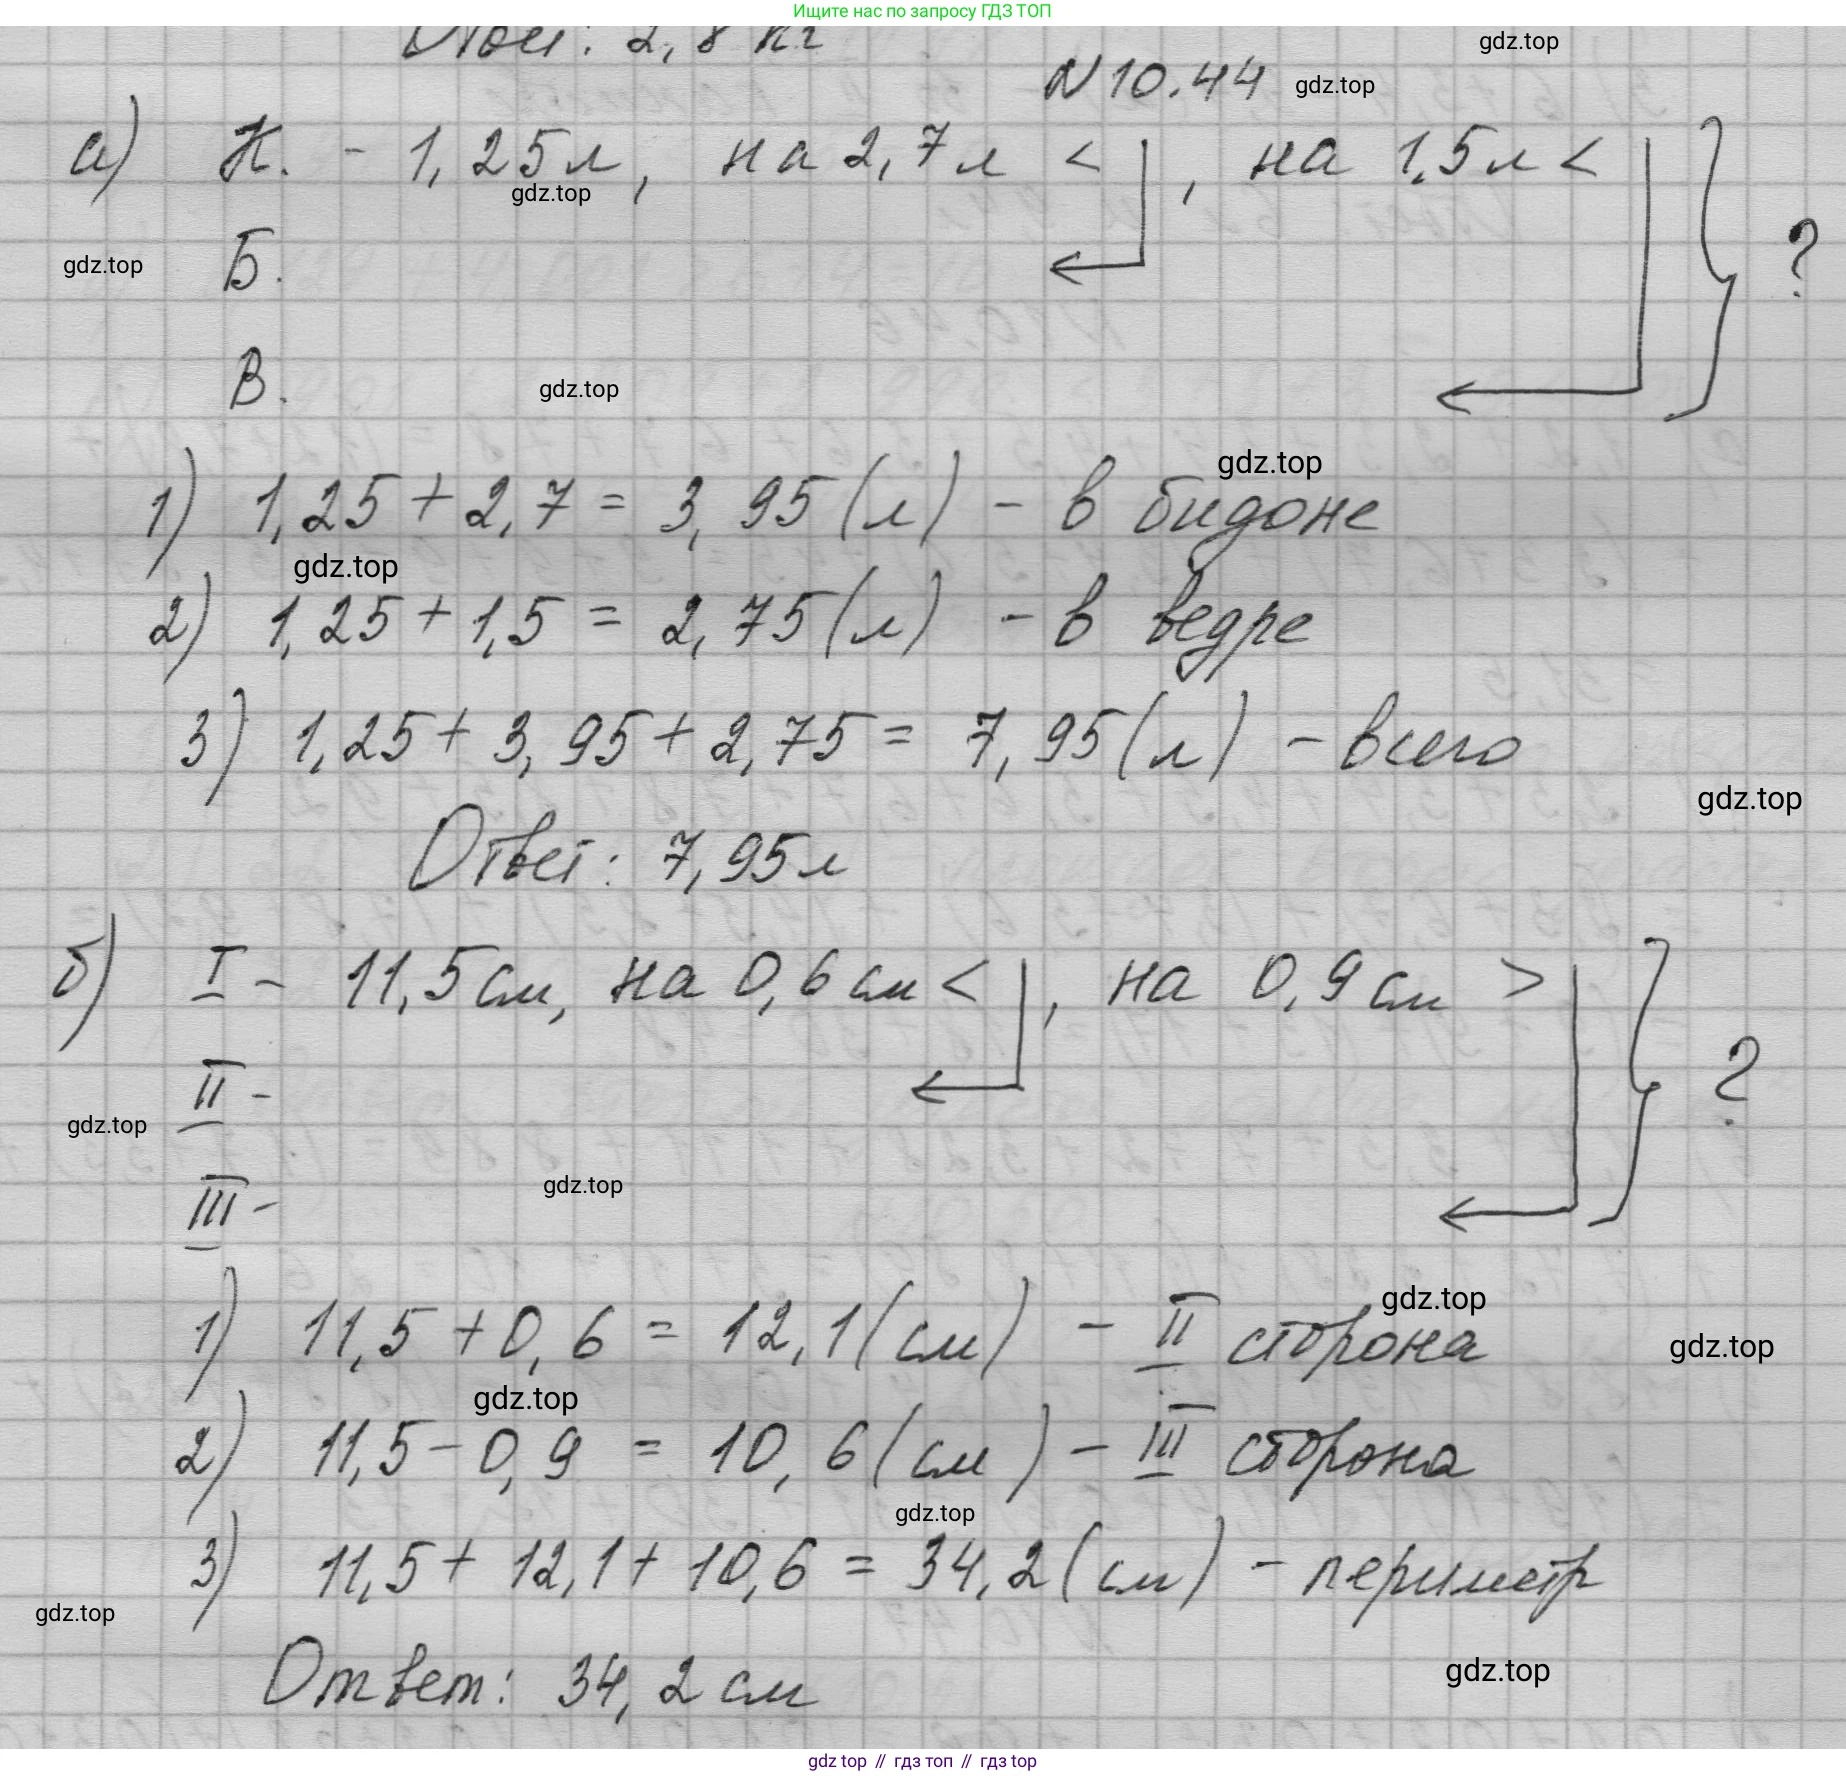 Ищите нас по запросу ГДЗ ТОП
Ответ: 2,8 кг
gdz.top
N 10.44 gdz.top
а) К. - 1,25 л, на 2,7 л < , на 1,5 л <
gdz.top
Б. ?
gdz.top
В.
gdz.top
gdz.top
1) 1,25 + 2,7 = 3,95 (л) - в бидоне
gdz.top
2) 1,25 + 1,5 = 2,75 (л) - в ведре
3) 1,25 + 3,95 + 2,75 = 7,95 (л) - всего
gdz.top
Ответ: 7,95 л
б) I - 11,5 см, на 0,6 см < , на 0,9 см >
II - ?
gdz.top
III -
gdz.top
gdz.top
1) 11,5 + 0,6 = 12,1 (см) - II сторона
gdz.top
gdz.top
2) 11,5 - 0,9 = 10,6 (см) - III сторона
gdz.top
3) 11,5 + 12,1 + 10,6 = 34,2 (см) - периметр
gdz.top
Ответ: 34,2 см
gdz.top
gdz top // гдз топ // гдз top